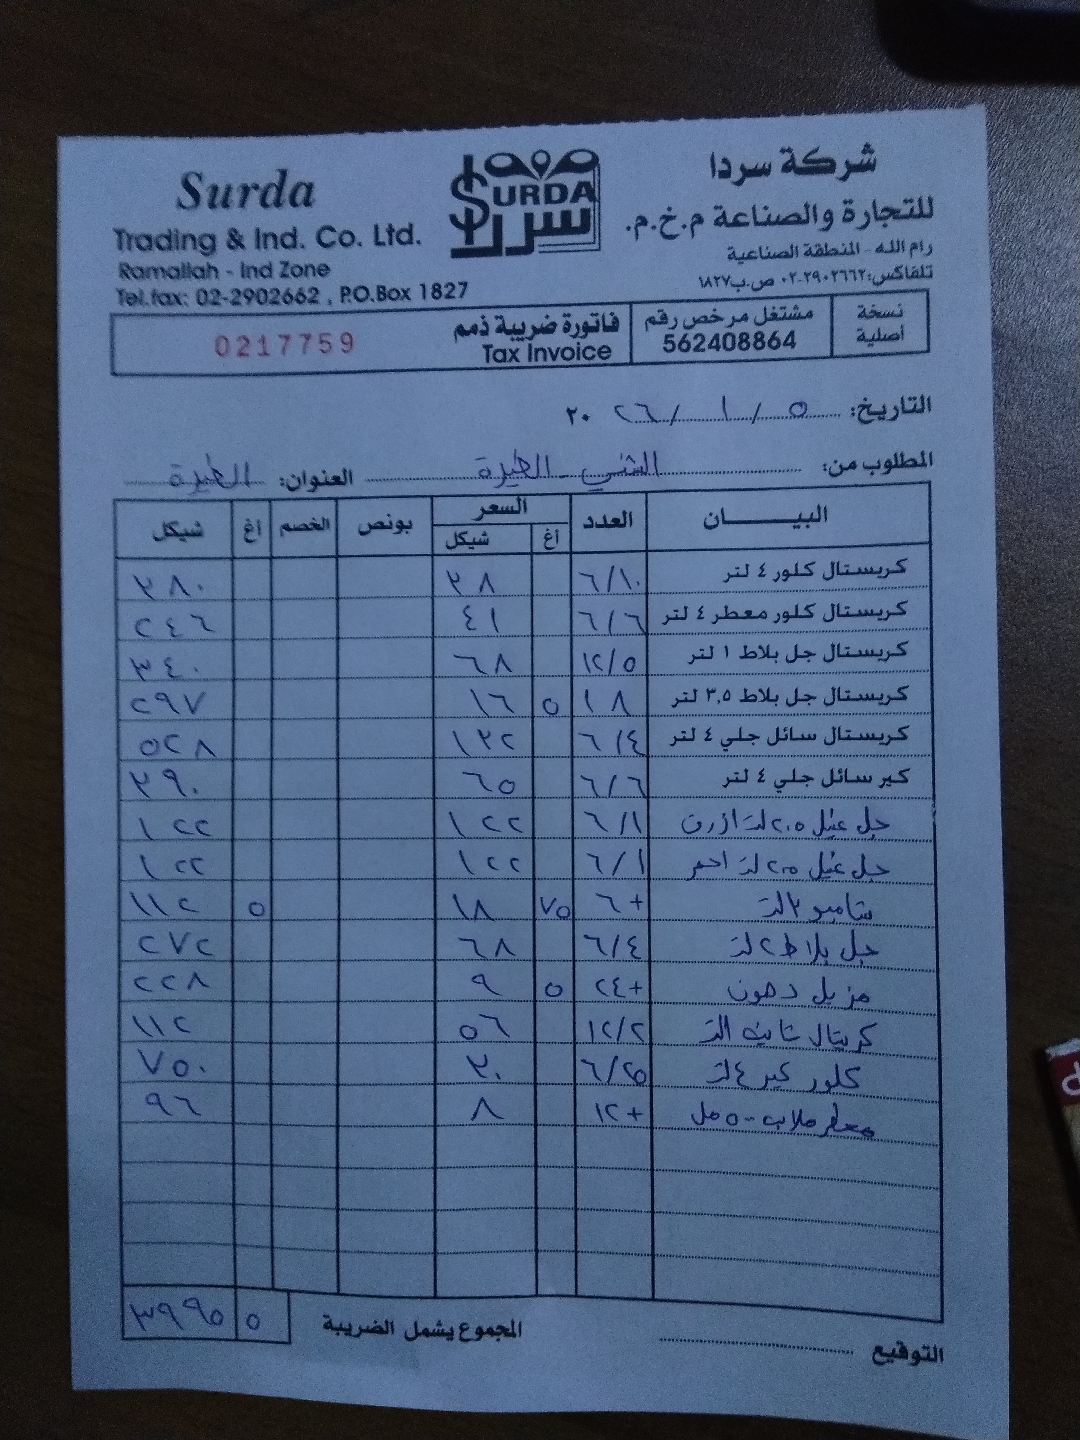 Surda
Trading & Ind. Co. Ltd.
Ramallah - Ind Zone
Tel.fax: 02-2902662 , P.O.Box 1827
SURDA
سردا
شركة سردا
للتجارة والصناعة م.خ.م.
رام الله - المنطقة الصناعية
تلفاكس: ٢٩٠٢٦٦٢-٠٢ ص.ب ١٨٢٧
نسخة أصلية
مشتغل مرخص رقم 562408864
فاتورة ضريبة ذمم
Tax Invoice
0217759
التاريخ: ٥ / ١ / ٢٠٢٦
المطلوب من: الشني الطيرة العنوان: الطيرة
البيــــان العدد السعر أغ شيكل بونص الخصم أغ شيكل
كريستال كلور ٤ لتر ٦/١٠ ٣٨ ٣٨٠
كريستال كلور معطر ٤ لتر ٦/٦ ٤١ ٢٤٦
كريستال جل بلاط ١ لتر ١٢/٥ ٦٨ ٣٤٠
كريستال جل بلاط ٣,٥ لتر ١٨ ٥ ١٦ ٢٩٧
كريستال سائل جلي ٤ لتر ٦/٤ ١٣٢ ٥٢٨
كير سائل جلي ٤ لتر ٦/٦ ٦٥ ٣٩٠
جل غسيل ٢.٥ لتر ازرق ٦/١ ١٢٢ ١٢٢
جل غسيل ٢.٥ لتر احمر ٦/١ ١٢٢ ١٢٢
شامبو ٣ لتر +٦ ٧٥ ١٨ ٥ ١١٢
جل بلاط ٢ لتر ٦/٤ ٦٨ ٢٧٢
مزيل دهون +٢٤ ٥ ٩ ٢٢٨
كريستال ١ لتر ١٢/٢ ٥٦ ١١٢
كلور كير ٤ لتر ٦/٢٥ ٣٠ ٧٥٠
معطر ملابس ٥٠٠ مل +١٢ ٨ ٩٦
المجموع يشمل الضريبة ٥ ٣٩٩٥
التوقيع